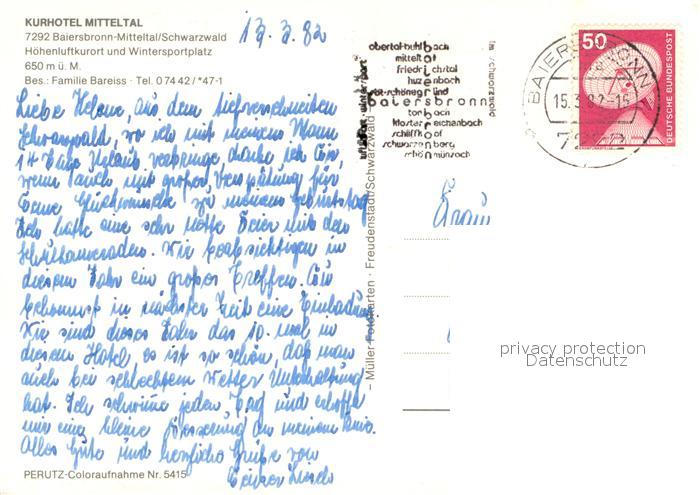 KURHOTEL MITTELTAL
7292 Baiersbronn-Mitteltal/Schwarzwald
Höhenluftkurort und Wintersportplatz
650 m ü. M.
Bes.: Familie Bareiss · Tel. 0 74 42 / *47-1
13.3.82
Liebe Helene, aus dem tiefverschneiten
Schwarzwald, wo ich mit meinem Mann
14 Tage Urlaub verbringe, danke ich Dir,
wenn auch mit großer Verspätung für
Deine Glückwünsche zu meinem Geburtstag.
Ich hatte eine sehr nette Feier mit den
Schulkameraden. Wir beabsichtigen in
diesem Jahr ein großes Treffen. Du
bekommst in nächster Zeit eine Einladung.
Wir sind dieses Jahr das 10. mal in
diesem Hotel, es ist so schön, daß man
auch bei schlechtem Wetter Unterhaltung
hat. Ich schwimme jeden Tag und erhoffe
mir eine kleine Besserung an meinem Knie.
Alles Gute und herzliche Grüße von
Deiner
PERUTZ-Coloraufnahme Nr. 5415
– Müller Fotokarten · Freudenstadt/Schwarzwald
obertal-buhlbach
mitteltal
friedrichstal
huzenbach
röt-schönegründ
baiersbronn
tonbach
klosterreichenbach
schliffkopf
schwarzenberg
schönmünzach
im schwarzwald
BAIERSBRONN
15.3.82-15
50
DEUTSCHE BUNDESPOST
Frau
privacy protection
Datenschutz